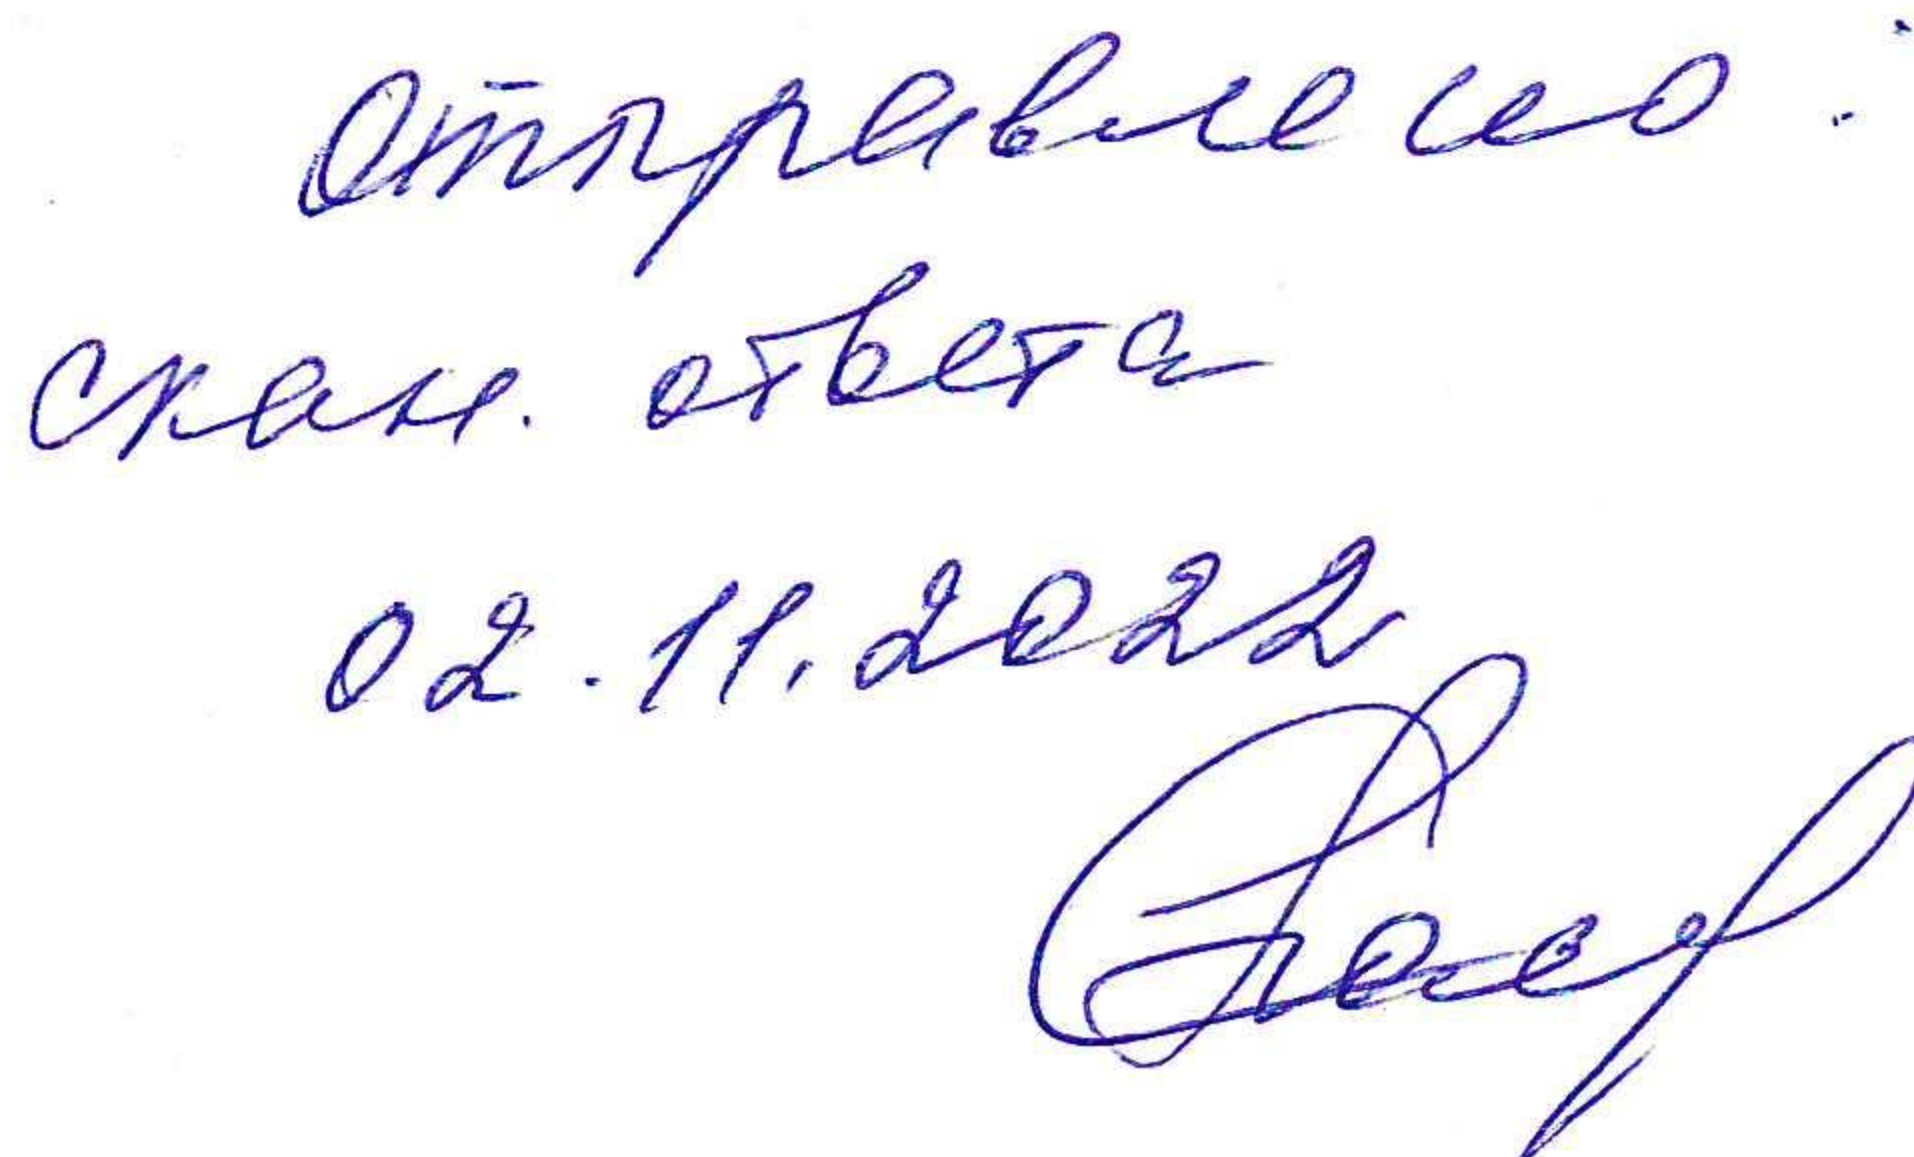 отправлено:
скан. ответа
02.11.2022